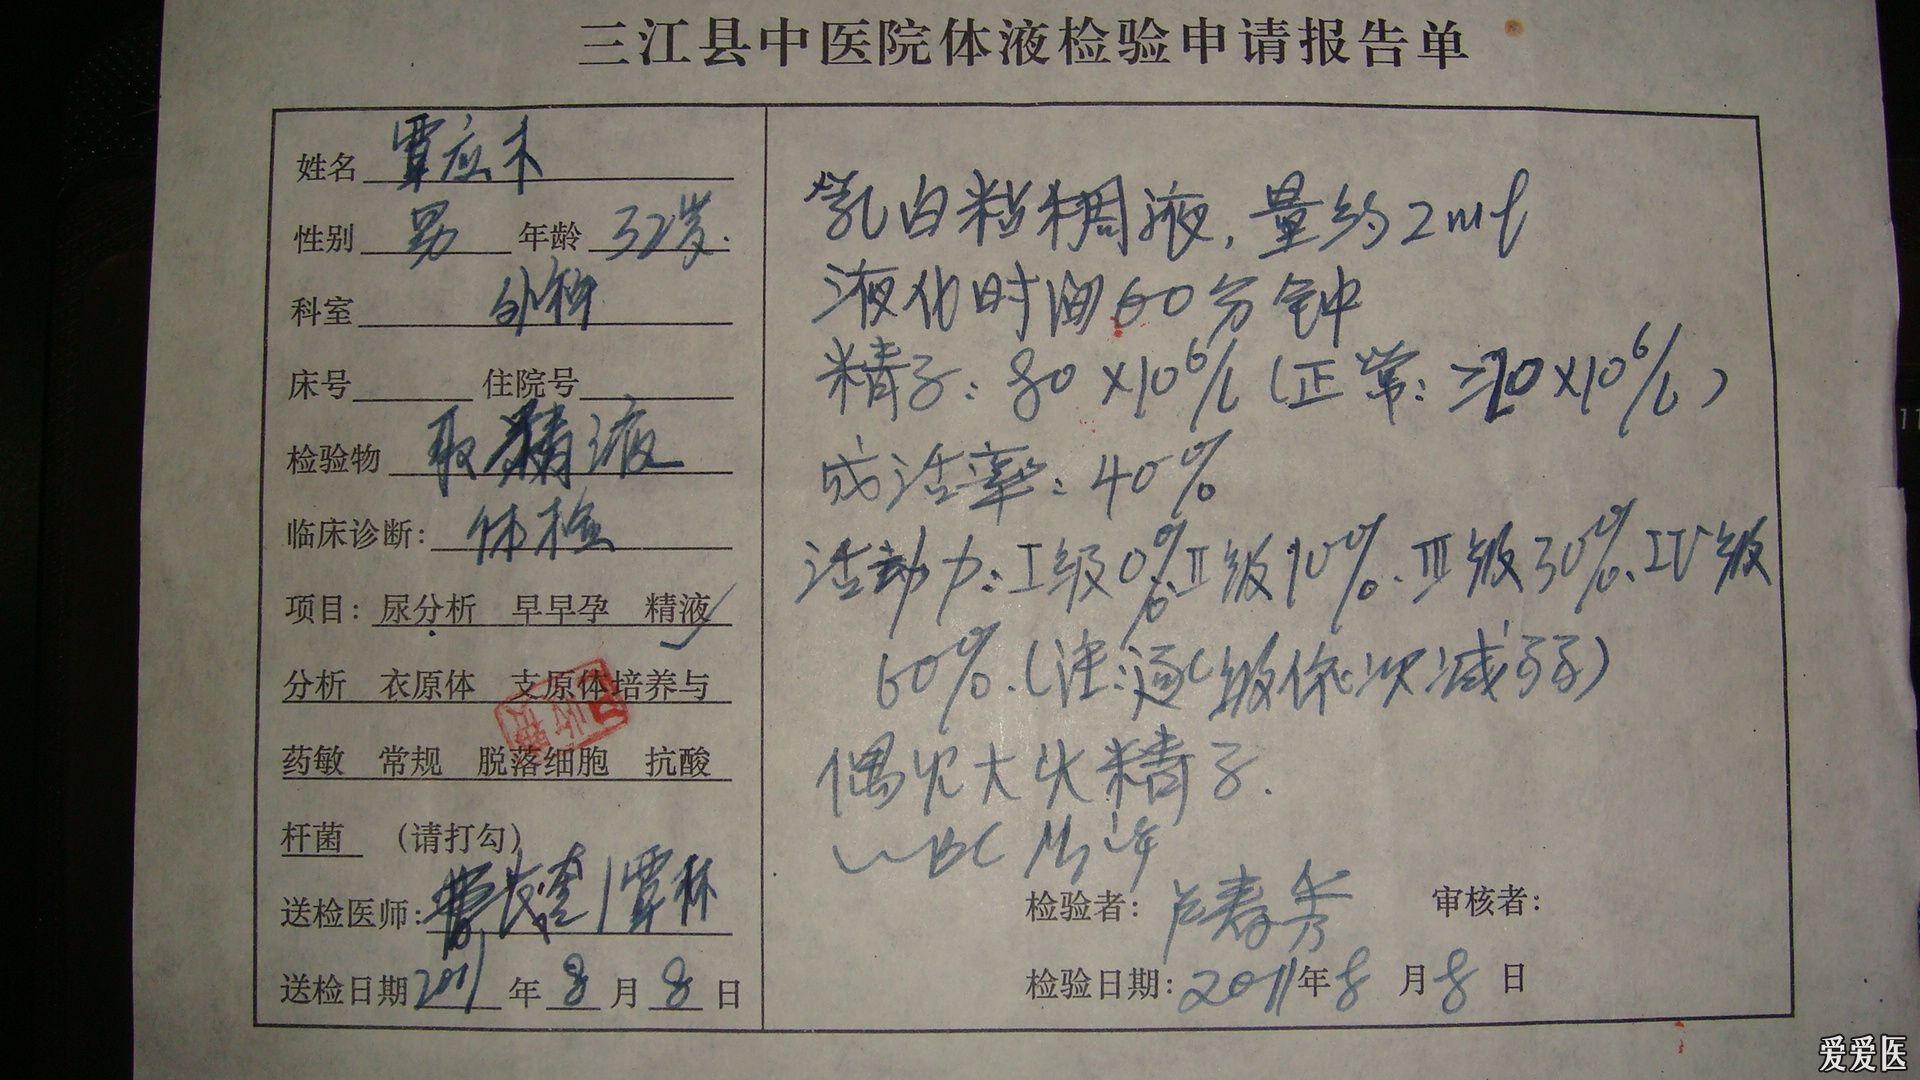 三江县中医院体液检验申请报告单
姓名 覃应木
性别 男 年龄 32岁
科室 外科
床号 住院号
检验物 取精液
临床诊断: 体检
项目: 尿分析 早早孕 精液
分析 衣原体 支原体培养与
药敏 常规 脱落细胞 抗酸
杆菌 (请打勾)
送检医师: /覃林
送检日期 2011 年 8 月 8 日
乳白粘稠液, 量约2ml
液化时间60分钟
精子: 80×10⁶/L (正常: ≥20×10⁶/L)
成活率: 40%
活动力: I级0% II级10%、III级30%、IV级
60%.(注:逐级依次减弱)
偶见大头精子.
WBC
检验者: 卢春秀 审核者:
检验日期: 2011年8月8日
爱爱医